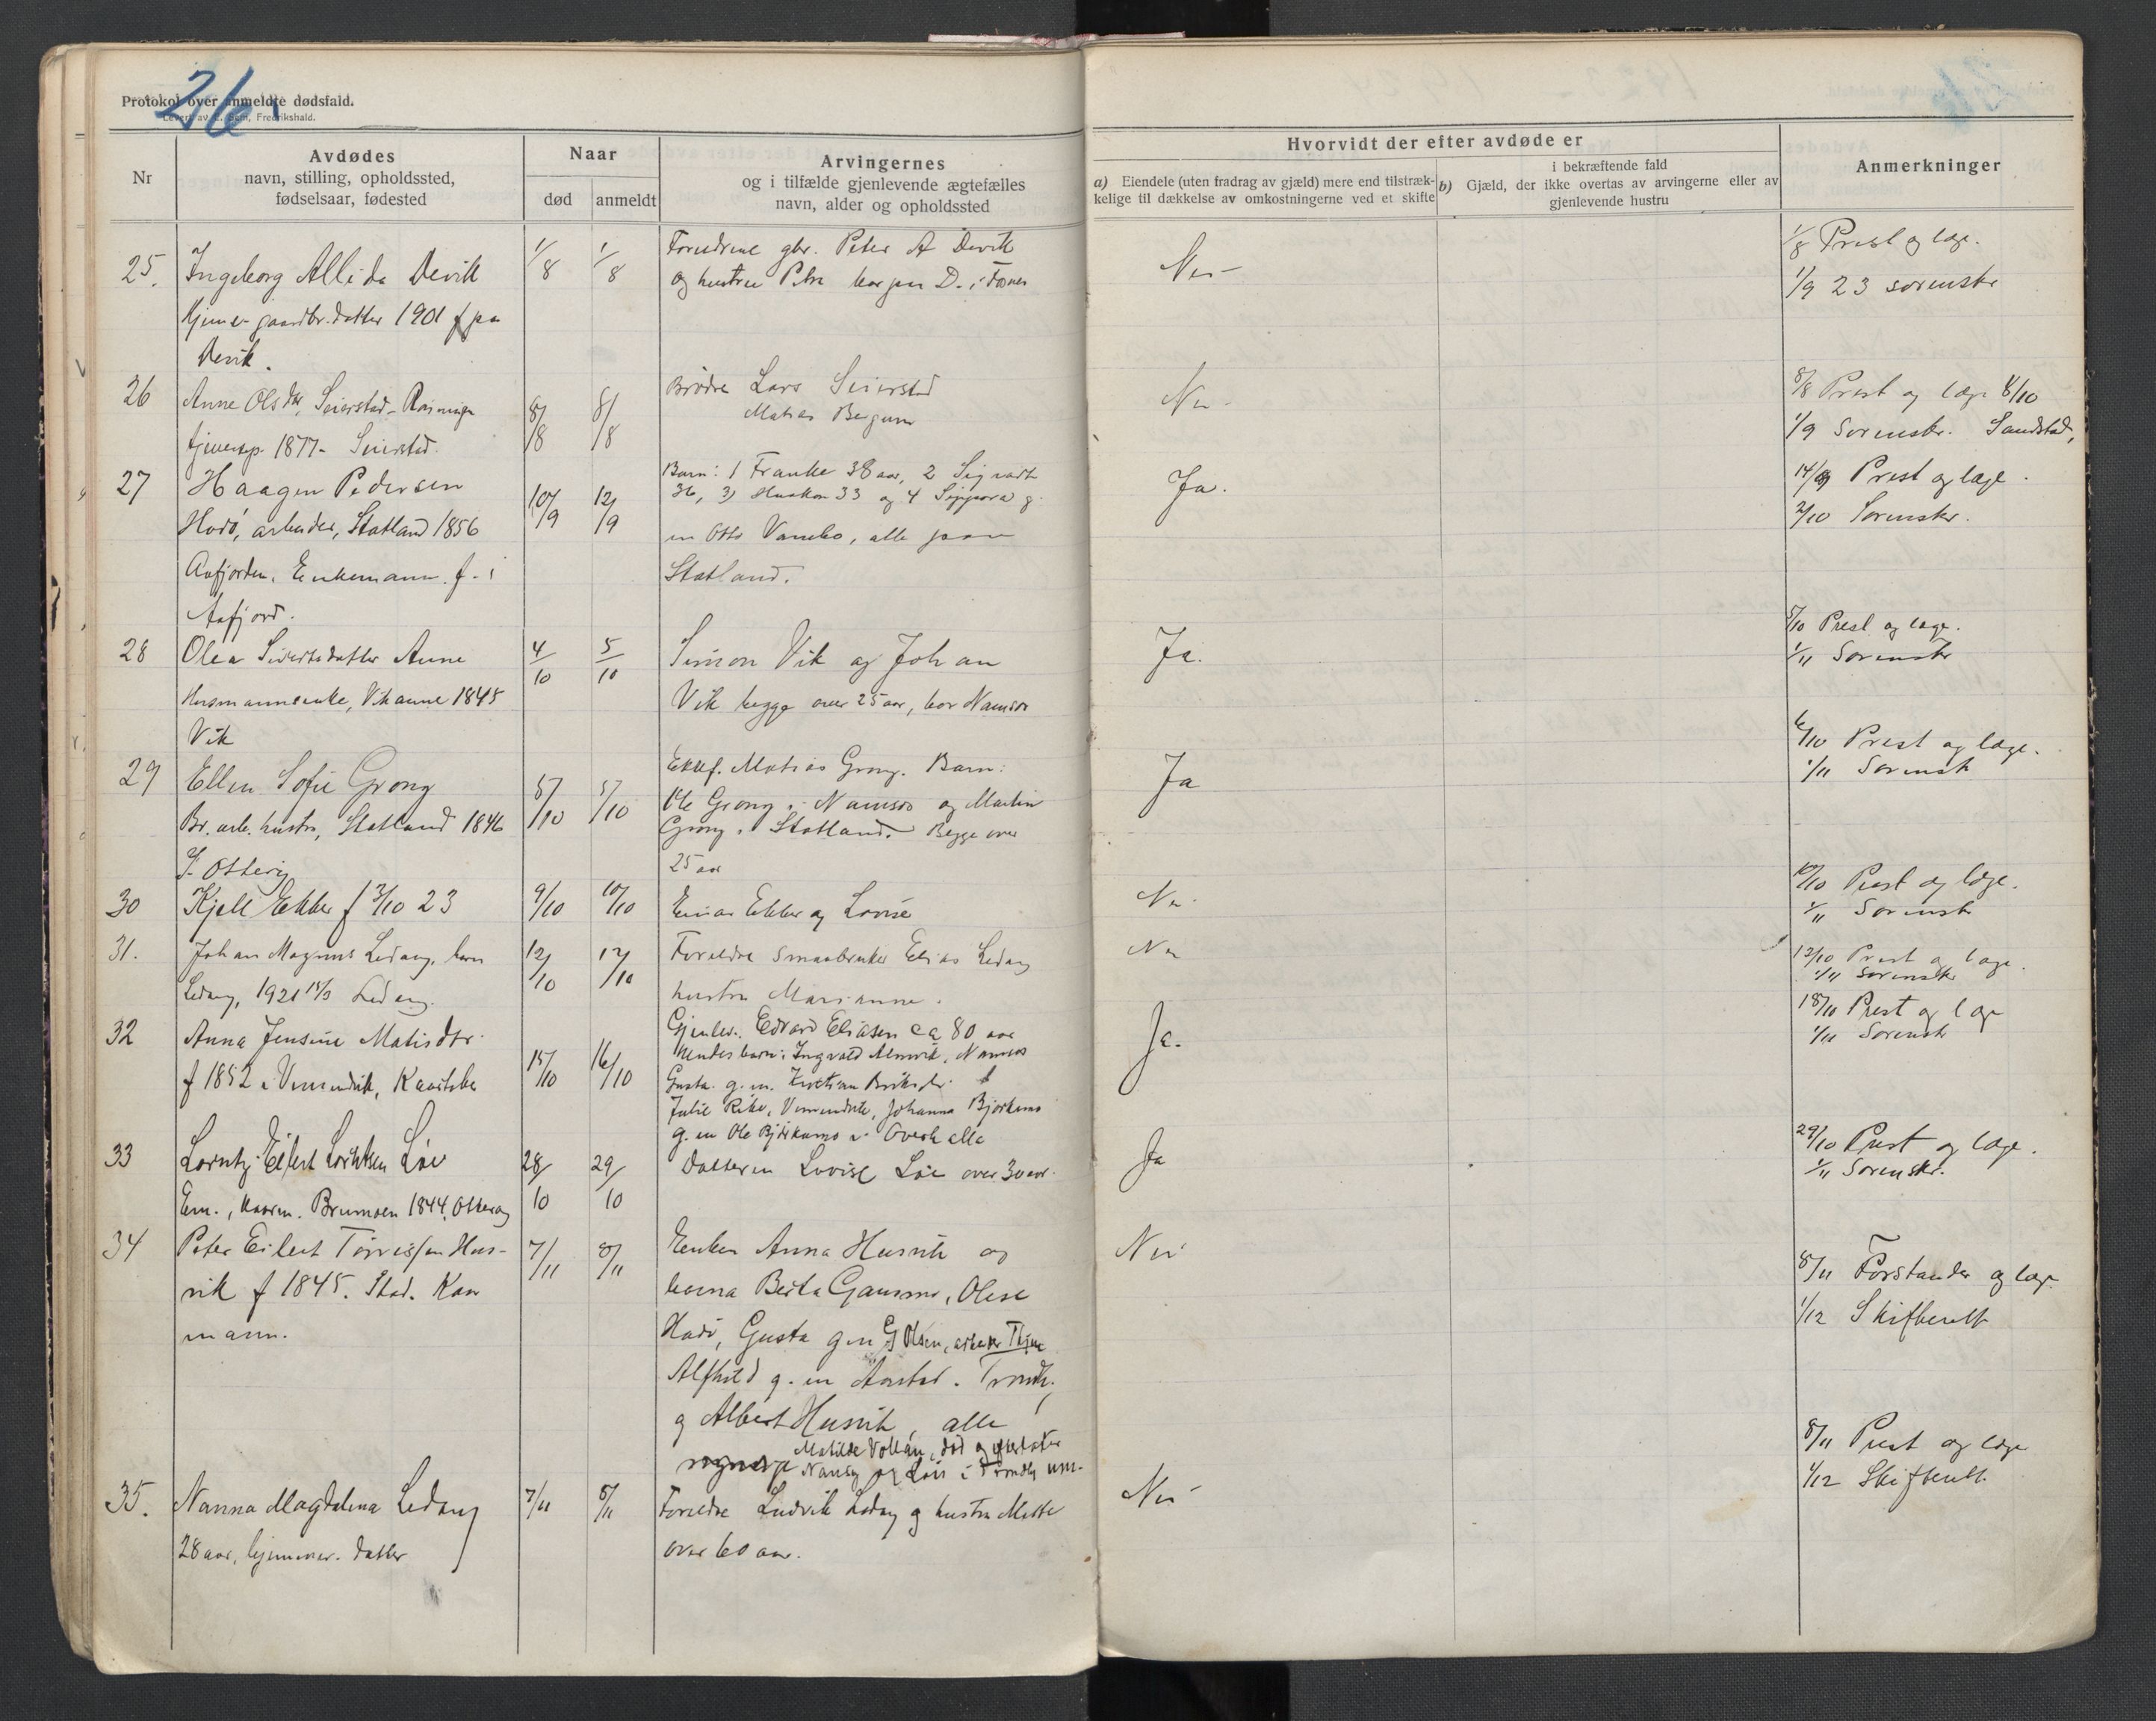 26
Protokol over anmeldte dødsfald.
Levert av E. Sem, Fredrikshald.
Nr
Avdødes
navn, stilling, opholdssted,
fødselsaar, fødested
Naar
død
anmeldt
Arvingernes
og i tilfælde gjenlevende ægtefælles
navn, alder og opholdssted
Hvorvidt der efter avdøde er
a) Eiendele (uten fradrag av gjæld) mere end tilstræk-
kelige til dækkelse av omkostningerne ved et skifte
i bekræftende fald
b) Gjæld, der ikke overtas av arvingerne eller av
gjenlevende hustru
Anmerkninger
25. Ingeborg Allida Devik
gaardbr. datter 1901 f paa
Devik.
1/8
1/8
Foreldrene gbr. Peter A Devik
og hustru Petra bor paa D. i Fosnes
Nei
1/8 Prest og læge.
1/9 23 sorenskr
26
Anne Olsdtr, Seierstad
1877 - Seierstad.
8/8
8/8
Brødre Lars Seierstad
Matias Bergum
Nei
8/8 Prest og læge 8/10
1/9 Sorenskr. Sandstad,
27
Haagen Pedersen
Hodø, arbeider, Statland 1856
Aafjorden. Enkemann. f. i
Aafjord.
10/9
12/9
Barn: 1 Franke 38 aar, 2 Sigvart
36, 3) Haakon 33 og 4 Sippora g.
m Otto Vanebo, alle paa
Statland.
Ja.
14/9 Prest og læge.
2/10 Sorenskr.
28
Olea Sivertsdatter Aune
Husmannsenke, Vikaune 1845
Vik
4/10
5/10
Simon Vik og Johan
Vik begge over 25 aar, bor Namsos
Ja.
5/10 Prest og læge.
1/11 Sorenskr
29
Ellen Sofie Grong
Br. arb. hustru, Statland 1846
f. Otterøy
5/10
5/10
Ektef. Matias Grong. Barn:
Ole Grong i Namsos og Martin
Grong i Statland. Begge over
25 aar
Ja
6/10 Prest og læge.
1/11 Sorensk
30
Kjell Ekker f 3/10 23
9/10
10/10
Einar Ekker og Lovise
Nei
10/10 Prest og læge.
1/11 Sorensk
31.
Johan Magnus Ledang, barn
Ledang, 1921 15/3 Ledang.
12/10
12/10
Foreldre smaabruker Elias Ledang
hustru Marianne.
Nei
13/10 Prest og læge.
1/11 Sorenskr
32
Anna Jensine Matisdtr.
f 1852 i Vemundvik,
15/10
16/10
Gjenlev. Edvard Eliasen ca 80 aar
hendes barn: Ingvald Almvik, Namsos
Gusta g. m. Kristian
Julie Riker, Vemundvik, Johanna Bjørkamo
g. m Ole Bjørkamo i Overhalla
Ja.
18/10 Prest og læge
1/11 Sorenskr
33
Lorntz Eilert Lorntsen Løe
Em., kaarm. Brumoen 1844, Otterøy
28/10
29/10
Datteren Lovise Løe over 30 aar.
Ja
29/10 Prest og læge.
1/11 Sorenskr.
34
Peter Eilert Tørrissen Hus-
vik f 1845. Stad. Kaar
mann.
7/11
8/11
Enken Anna Husvik og
barna Berta Gansmo, Olise
Hodø, Gusta g m G Olsen, arbeider Thjem
Alfhild g. m Aarstad. Trondh.
og Albert Husvik, alle
Matilde Vollan, død og efterlater
Nansy og Lois i Trondhj um.
Nei
8/11 Forstander og læge
1/12 Skifterett
35.
Nanna Magdalena Ledang
28 aar, hjemmev. datter
7/11
8/11
Foreldre Ludvik Ledang og hustru Mette
over 60 aar.
Nei
8/11 Prest og læge
1/12 Skifterett.